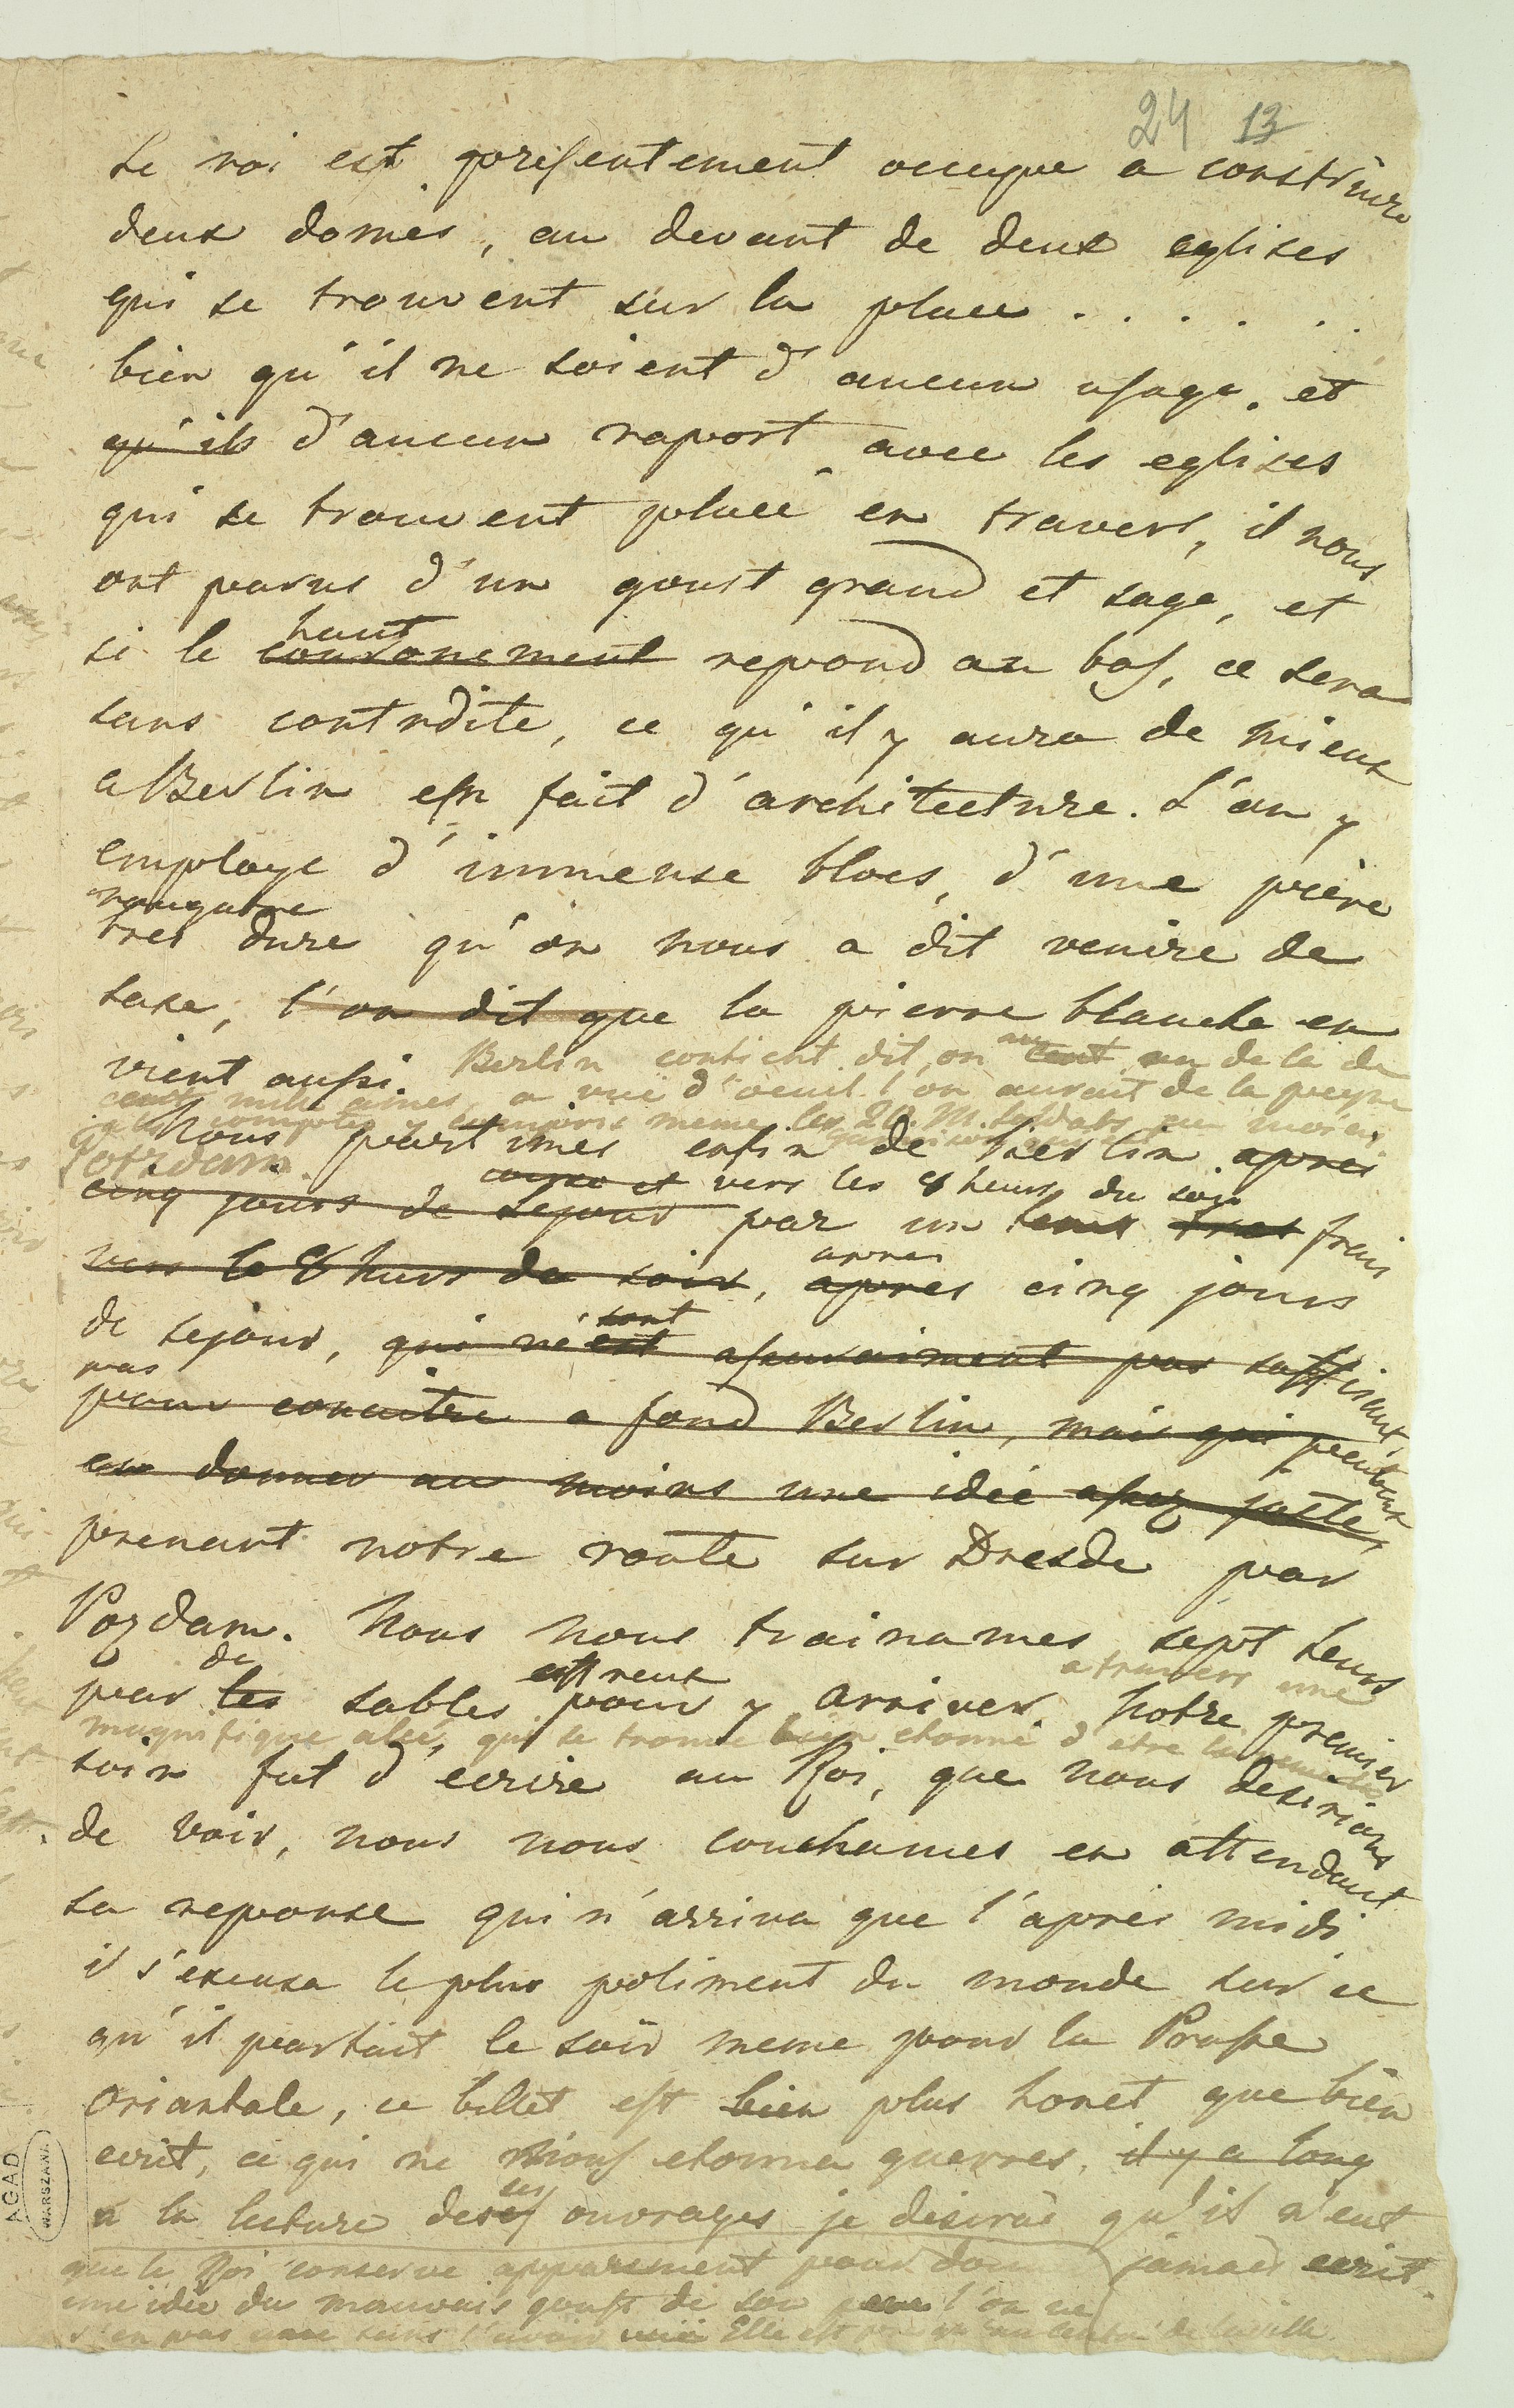 24 13
Le roi est presentement occupe a construire
deux domes, au devant de deux eglises
qui se trouvent sur la place . . . . . .
bien qu'il ne soient d'aucun usage. et
qu'ils d'aucun raport avec les eglises
qui se trouvent placé en travers, il nous
ont parus d'un goust grand et sage, et
haut
si le couronement repond au bas, ce sera
sans contrdite, ce qu'il y aura de mieux
a Berlin en fait d'architecture. L'on y
employe d'immense blocs, d'une pière
rougatre
tres dure qu'on nous a dit venire de
saxe, l'on dit que la pierre blanche en
vient aussi. Berlin contient dit, on cent au de la de
cent mille ames, a vuë d'oeuil l'on aurait de la peine
meme les 20. M. soldats
Nous partimes enfin de Berlin après
Potzdam.
et vers les 8 heurs du soir
cinq jours de sejour par un tems tres frais
vers le 8 heurs du soir, apres cinq jours
apres
sont
de sejour, qui n'est assurement pas suffisant,
pas
pour conaitre a fond Berlin, mais qui peuvent
en donner au moins une idée assez juste,
prenant notre route sur Dresde par
Pozdam. Nous nous trainames sept heurs
de
a travers une
par les sables pour y arriver. Notre premier
magnifique aleé, qui se trouve bien etonné d'être
soin fut d'ecrire au Roi, que nous desirions
de voir, nous nous couchames en attendant
sa reponse qui n'arriva que l'après midi
il s'excusa le plus poliment du monde sur ce
qu'il partait le soir meme pour la Prusse
Oriantale, ce billet est bien plus honet que bien
ecrit, ce qui ne nous etonna guerres, il y a long
ses
a la lecture des ouvrages je desirai qu'il n'eut
jamais ecrit
que le Roi conserve apparement pour
une idée du mauvais goust de son l'on ne
Elle est de la ville.
AGAD
WARSZAWA